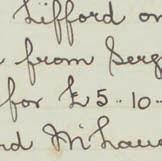 Lifford on
from Serg
for £5-10-
nd McLau